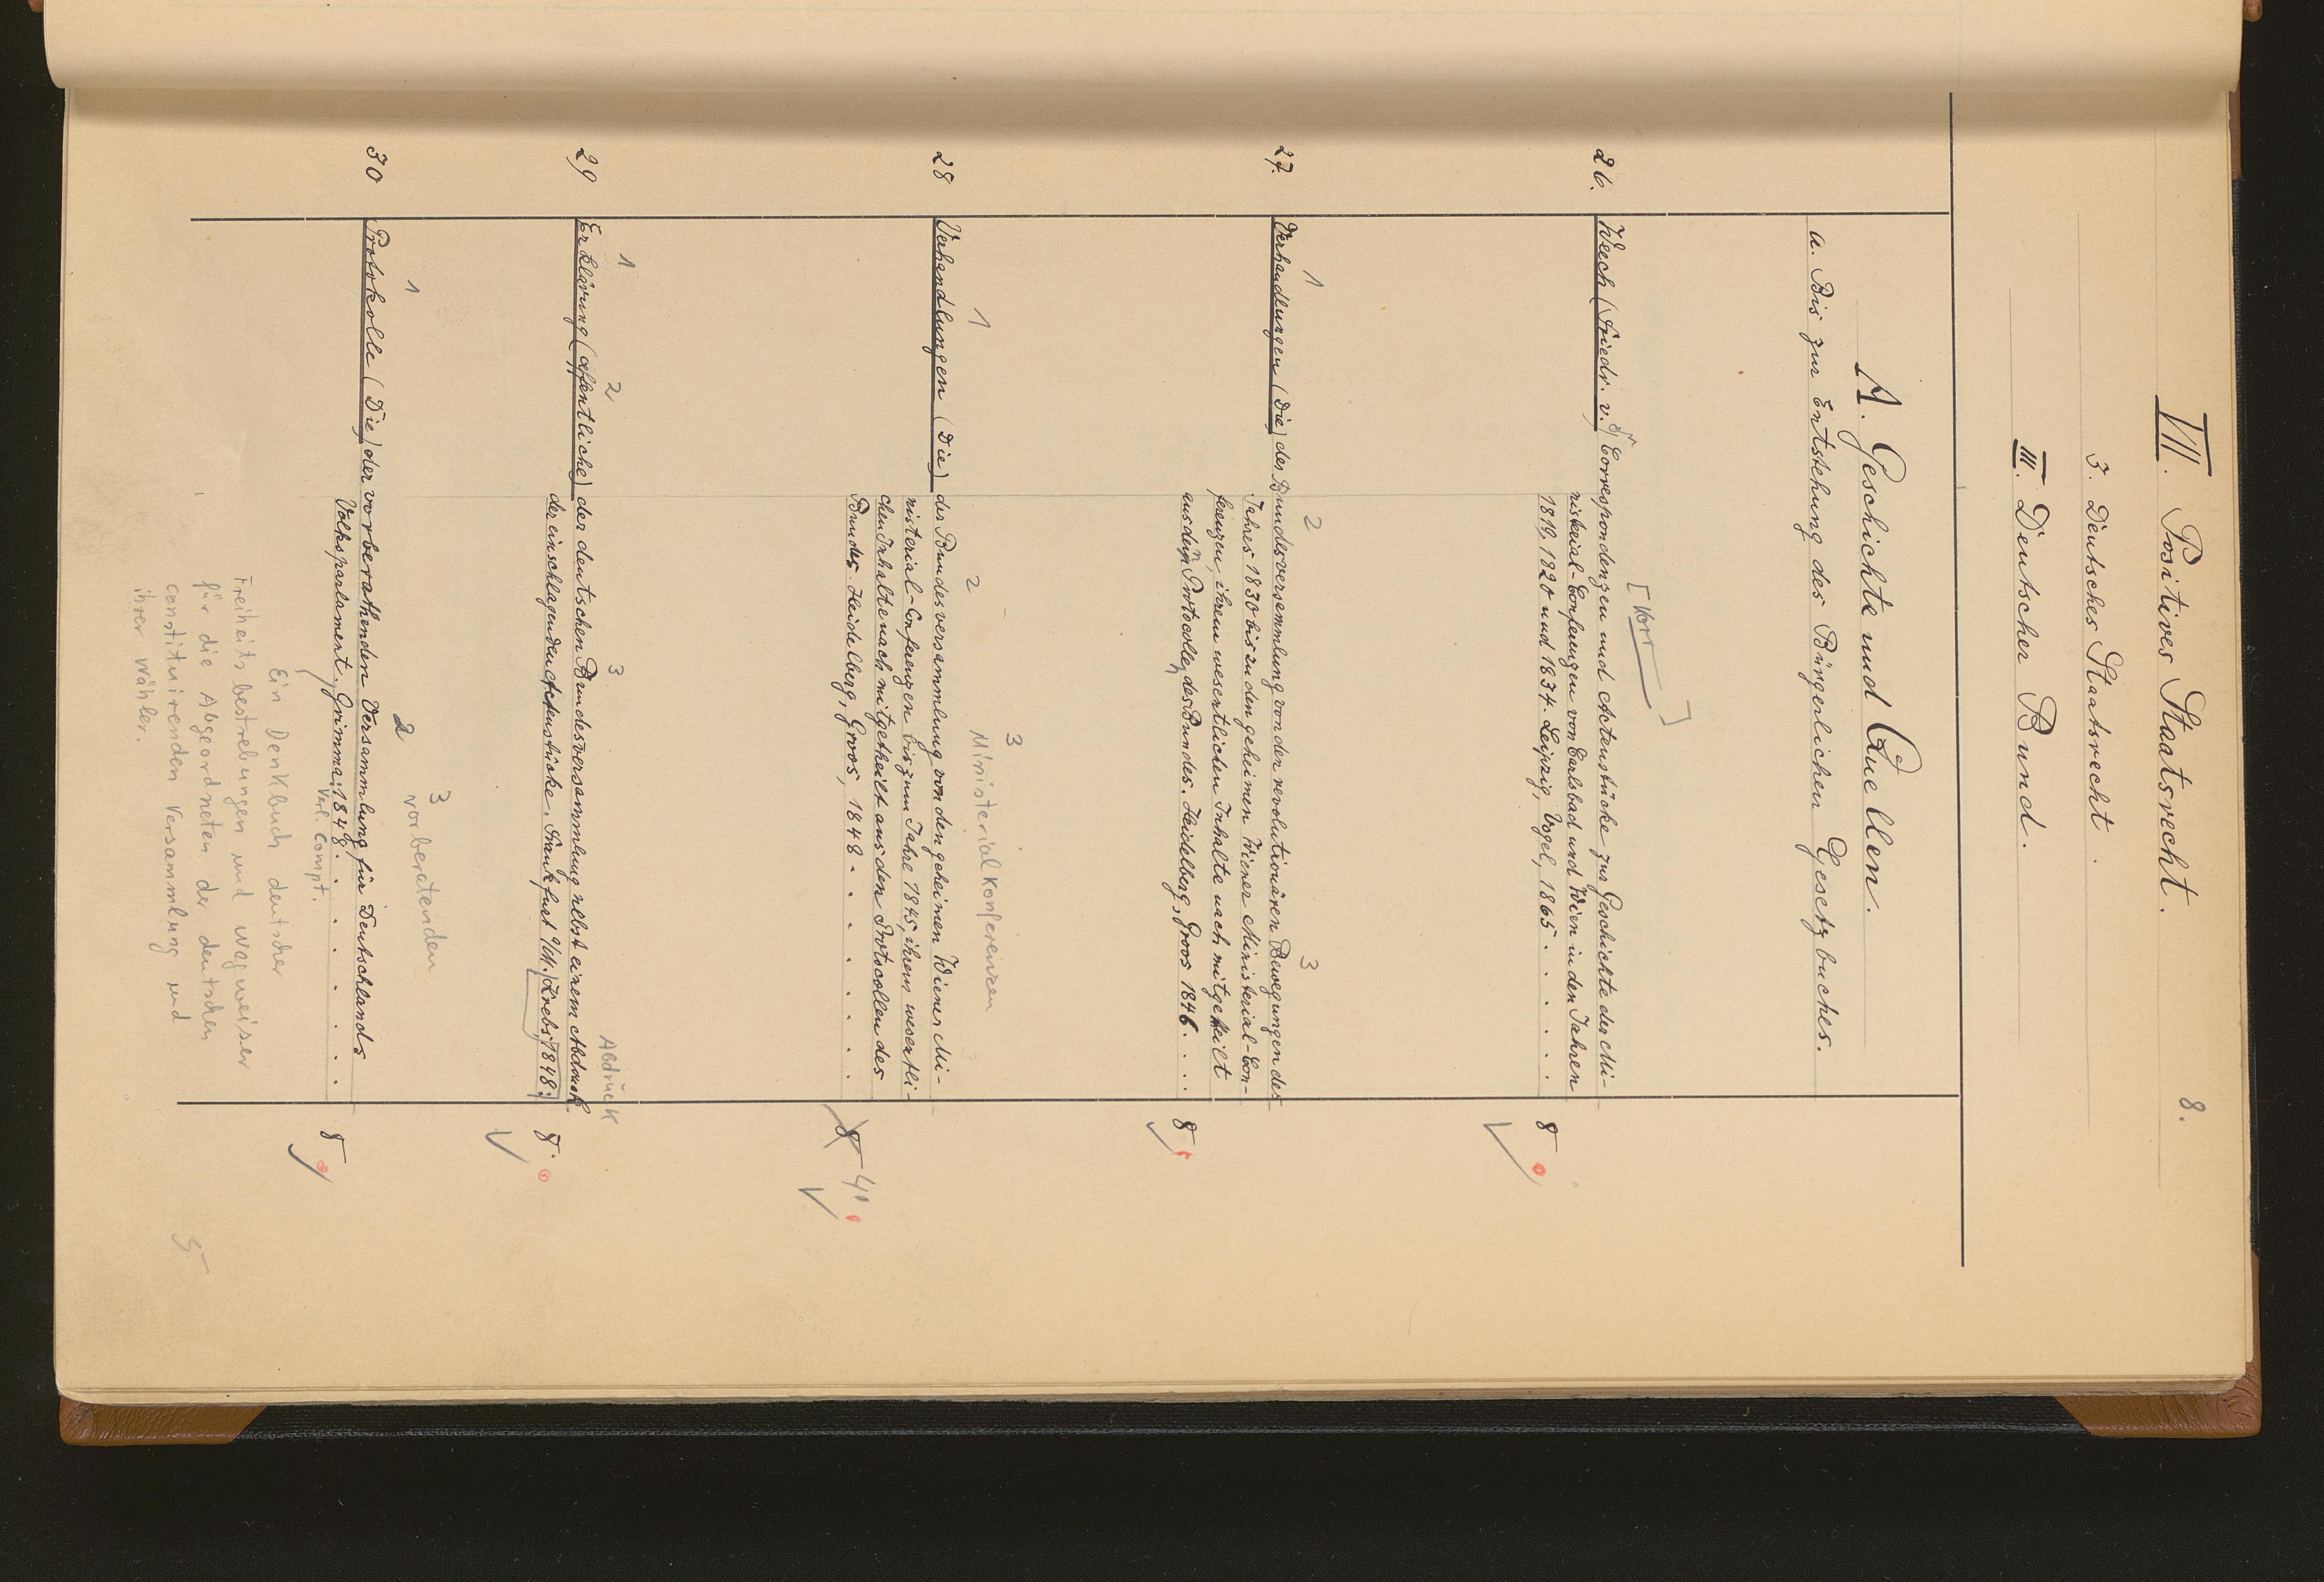 8.
VII. Positives Staatsrecht.
3. Deutsches Staatsrecht.
III. Deutscher Bund.
A. Geschichte und Quellen.
a. Bis zur Entstehung des Bürgerlichen Gesetzbuches.
[Korr]
26. Weech (Friedr. v.) Correspondenzen und Actenstücke zur Geschichte der Mi-
nisterial-Conferenzen von Carlsbad und Wien in den Jahren
1819, 1820 und 1834. Leipzig, Vogel, 1865 . . . . . 8
1 2 3
27. Verhandlungen (Die) der Bundesversammlung von der revolutionären Bewegungen des
Jahres 1830 bis zu den geheimen Wiener Ministerial-Con-
ferenzen, ihrem wesentlichen Inhalte nach mitgetheilt
aus den Protocollen des Bundes. Heidelberg, Groos 1846. . . . 8
1 2 3
Ministerialkonferenzen
28 Verhandlungen (Die) der Bundesversammlung von den geheimen Wiener Mi-
nisterial-Conferenzen bis zum Jahre 1845, ihrem wesentli-
chen Inhalte nach mitgetheilt aus den Protocollen des
Bundes. Heidelberg, Groos, 1848 . . . . . . 8 4°
1 2 3
Abdruck
29 Erklärung (oeffentliche) der deutschen Bundesversammlung nebst einem Abdruck
der einschlagenden Actenstücke. Frankfurt a/M. Krebs, 1848. 8.
1 2 3
vorberatenden
30 Protokolle (Die) der vorberathenden Versammlung für Deutschlands
Volksparlament. Grimma: 1848. . . . . . . 8
Verl. Compt.
Ein Denkbuch deutscher
Freiheitsbestrebungen und Wegweiser
für die Abgeordneten der deutschen
constituirenden Versammlung und
ihrer Wähler.
5